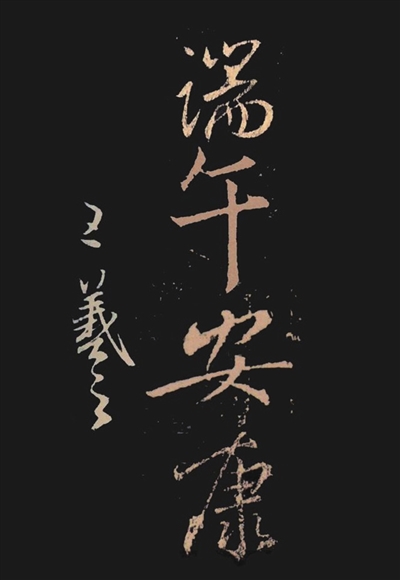 端午安康
王羲之